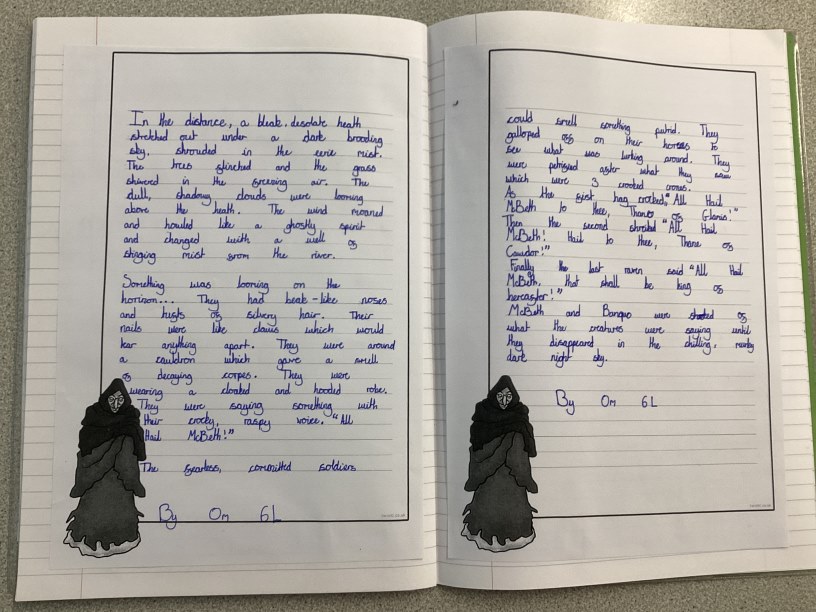 In the distance, a bleak, desolate heath
stretched out under a dark brooding
sky, shrouded in the eerie mist.
The trees flinched and the grass
shivered in the freezing air. The
dull, shadowy clouds were looming
above the heath. The wind moaned
and howled like a ghostly spirit
and changed with a well of
stinging mist from the river.
Something was looming on the
horizon... They had beak-like noses
and tufts of silvery hair. Their
nails were like claws which would
tear anything apart. They were around
a cauldron which gave a smell
of decaying corpes. They were
wearing a cloaked and hooded robe.
They were saying something with
their crocky, raspy voice. "All
Hail McBeth!"
The fearless, committed soldiers
By Om 6L
could smell something putrid. They
galloped off on their horses to
see what was lurking around. They
were petrified after what they saw
which were 3 crooked crones.
As the first hag croaked, "All Hail
McBeth to thee, Thane of Glamis!"
Then the second shreked "All Hail
McBeth! Hail to thee, Thane of
Cawdor!"
Finally the last raven said "All Hail
McBeth, that shall be king of
hereafter!"
McBeth and Banquo were of
what the creatures were saying until
they disappeared in the chilling,
dark night sky.
By Om 6L